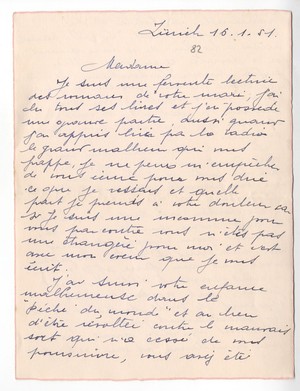 Zürich 16.1.81.
82
Madame
Je suis une fervente lectrice
des romans de votre mari, j'ai
lu tous ses livres et j'en possède
une grande partie. Aussi quand
j'ai appris hier par la radio
le grand malheur qui vous
frappe, je ne peux m'empêcher
de vous écrire pour vous dire
ce que je ressens et quelle
part je prends à votre douleur car
si je suis une inconnue pour
vous par contre vous n'êtes pas
une étrangère pour moi et c'est
avec mon coeur que je vous
écris.
J'ai suivi votre enfance
malheureuse dans la
"Biche du monde" et au lieu
d'être révoltée contre le mauvais
sort qui n'a cessé de vous
poursuivre, vous avez été